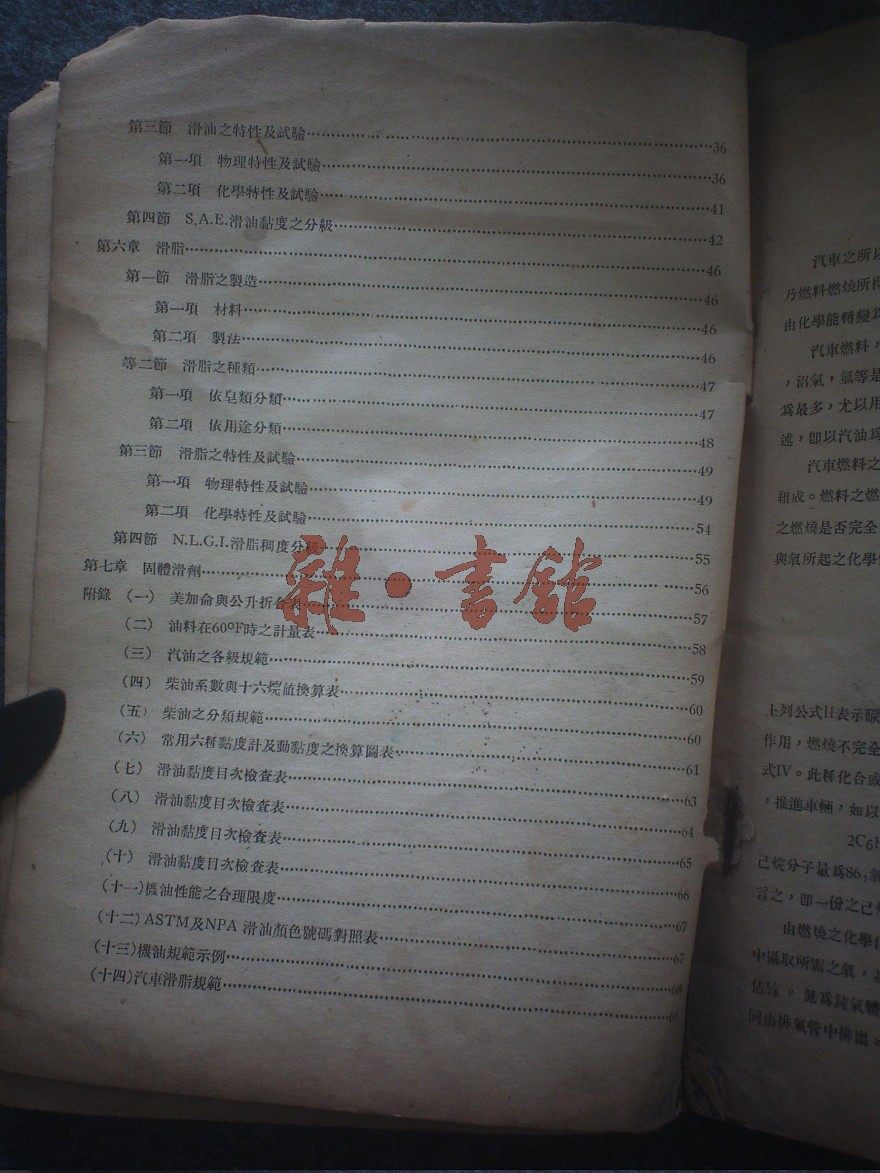 第三節 滑油之特性及試驗……36
第一項 物理特性及試驗……36
第二項 化學特性及試驗……41
第四節 S.A.E.滑油黏度之分級……42
第六章 滑脂……46
第一節 滑脂之製造……46
第一項 材料……46
第二項 製法……46
等二節 滑脂之種類……47
第一項 依皂類分類……47
第二項 依用途分類……48
第三節 滑脂之特性及試驗……49
第一項 物理特性及試驗……49
第二項 化學特性及試驗……54
第四節 N.L.G.I.滑脂稠度分級……55
第七章 固體滑劑……56
附錄 (一) 美加侖與公升折合表……57
(二) 油料在60°F時之計量表……58
(三) 汽油之各級規範……59
(四) 柴油系數與十六烷値換算表……60
(五) 柴油之分類規範……60
(六) 常用六種黏度計及動黏度之換算圖表……61
(七) 滑油黏度目次檢查表……63
(八) 滑油黏度目次檢查表……64
(九) 滑油黏度目次檢查表……65
(十) 滑油黏度目次檢查表……66
(十一)機油性能之合理限度……67
(十二)ASTM及NPA 滑油顏色號碼對照表……67
(十三)機油規範示例……68
(十四)汽車滑脂規範……
雜·書館
汽車之所以
乃燃料燃燒所得
由化學能轉變爲
汽車燃料,
,沼氣,氫等是
爲最多,尤以用
述,卽以汽油爲
汽車燃料之
組成。燃料之燃
之燃燒是否完全
與氧所起之化學
上列公式II表示碳
作用,燃燒不完全
式IV。此種化合或
,推進車輛,如以
2C6
己烷分子量爲86;
言之,卽一份之己
由燃燒之化學
中攝取所需之氧,
同由排氣管中排出。